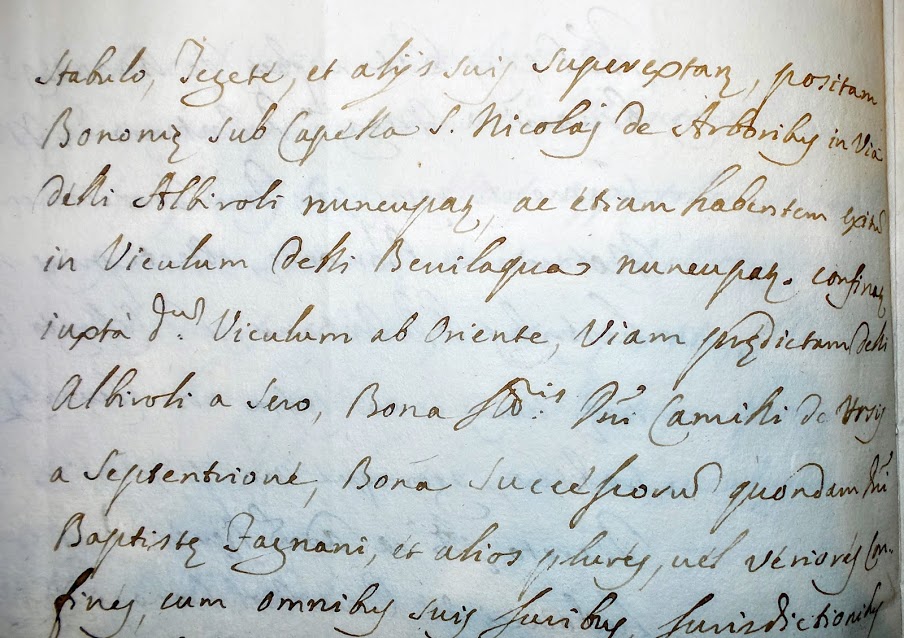 Stabulo, Tegete, et alijs suis superextanꝫ, positam
Bononię sub Capella S. Nicolaj de Arboribus in Via
delli Albiroli nuncupatꝫ, ac etiam habentem exitũ
in Viculum delli Beuilaqua nuncupatꝫ. confinatꝫ
iuxta d.ᵘᵐ Viculum ab Oriente, Viam prędictam delli
Albiroli a sero, Bona Dñi Camilli de Ursis
a Septentrione, Bona successorũ quondam Dñi
Baptistę Fagnani, et alios plures, uel veriores Con-
fines, cum omnibus suis Juribus, Jurisdictionibus